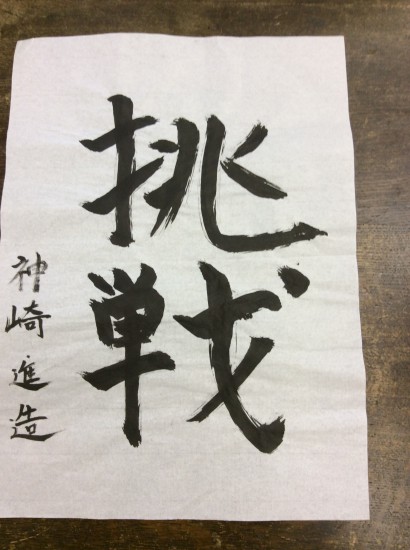 挑戦
神崎進造